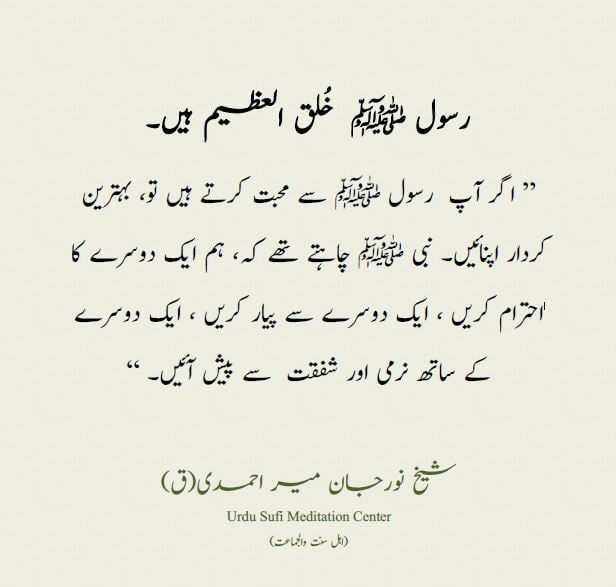 رسول ﷺ خُلق العظیم ہیں۔
” اگر آپ رسول ﷺ سے محبت کرتے ہیں تو، بہترین
کردار اپنائیں۔ نبی ﷺ چاہتے تھے کہ، ہم ایک دوسرے کا
احترام کریں ، ایک دوسرے سے پیار کریں ، ایک دوسرے
کے ساتھ نرمی اور شفقت سے پیش آئیں۔ “
شیخ نورجان میر احمدی(ق)
Urdu Sufi Meditation Center
(اہل سنت والجماعت)